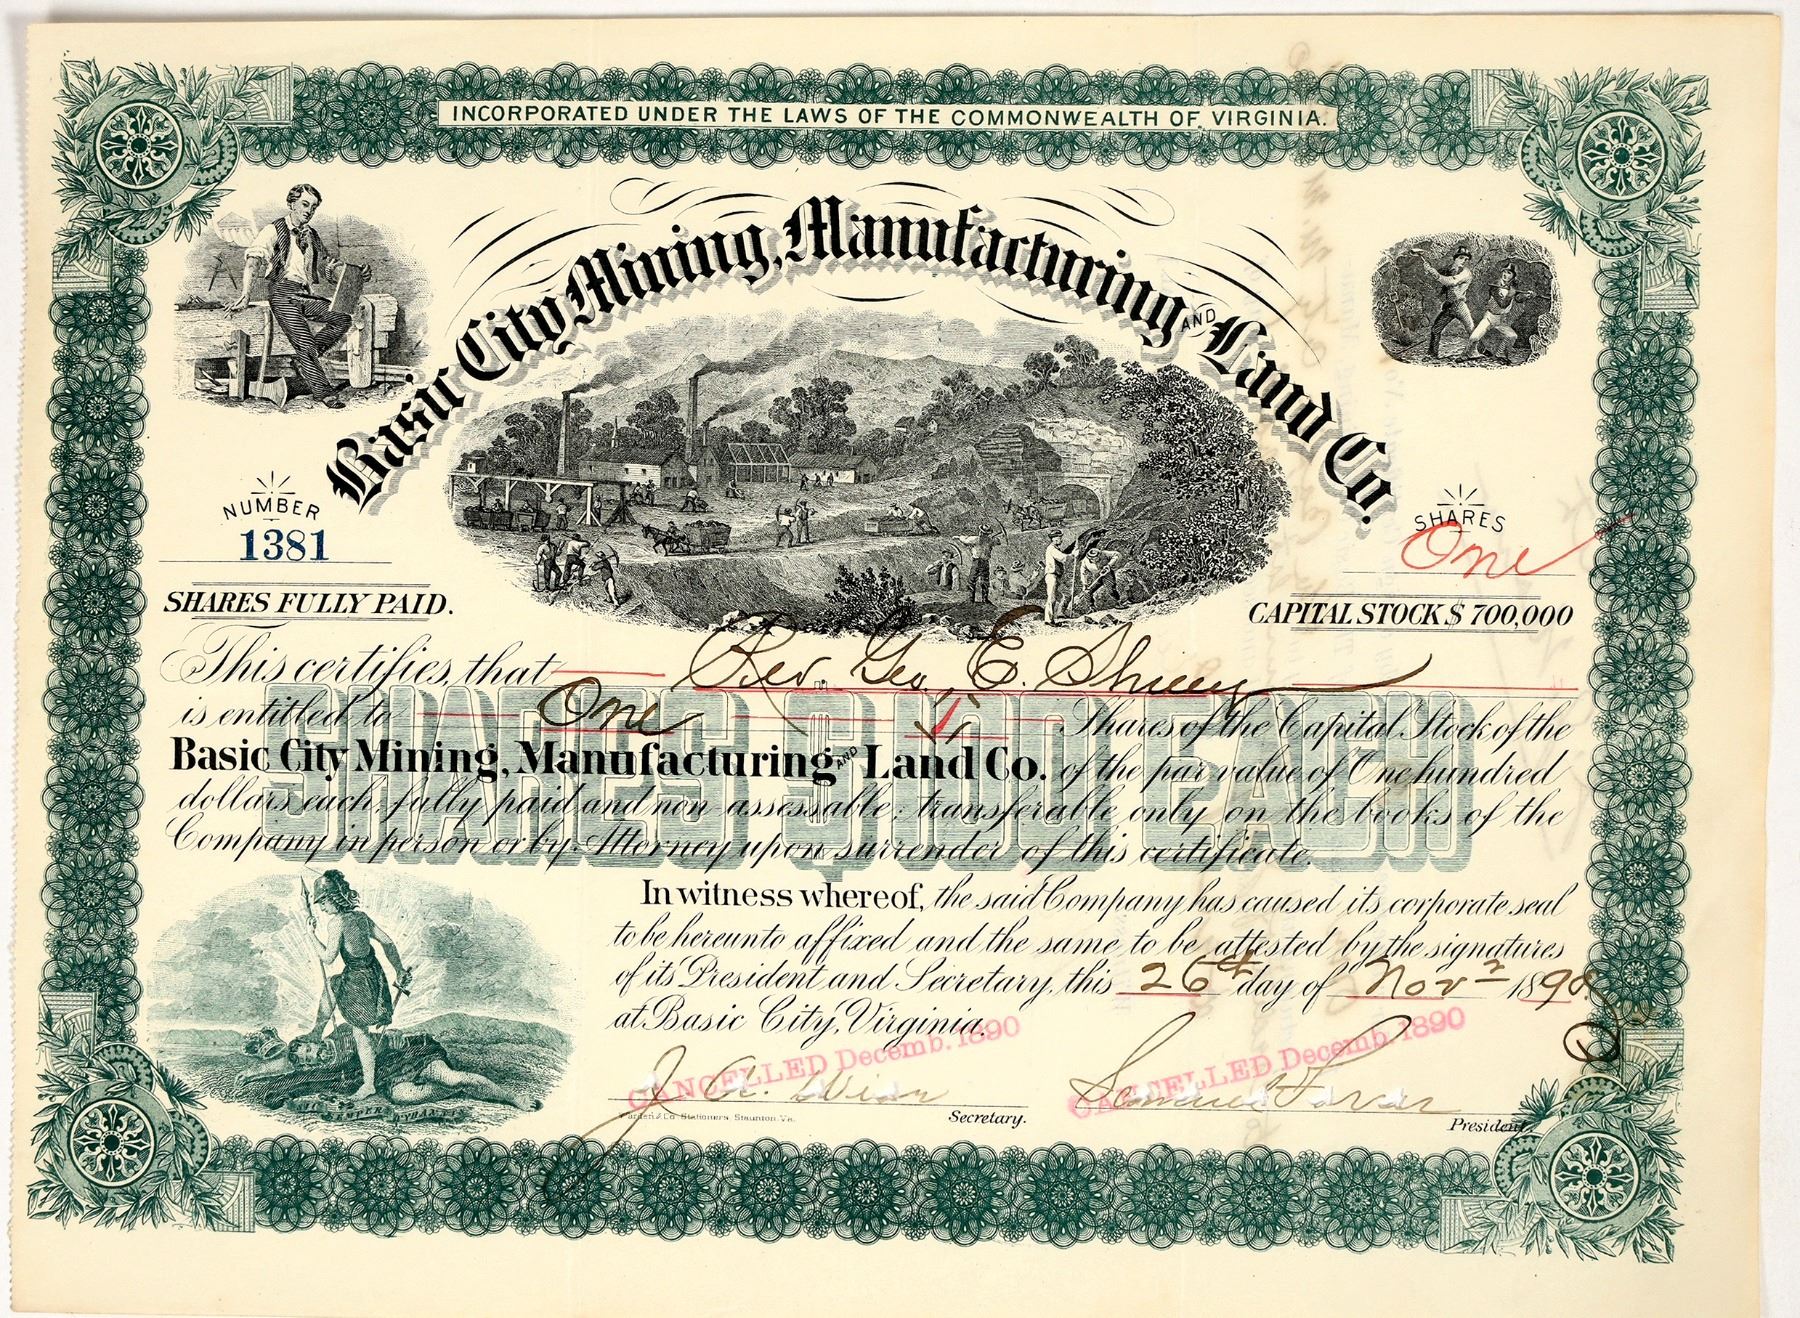 INCORPORATED UNDER THE LAWS OF THE COMMONWEALTH OF VIRGINIA.
Basic City Mining, Manufacturing AND Land Co.
NUMBER
1381
SHARES
One
SHARES FULLY PAID.
CAPITAL STOCK $ 700,000
This certifies, that Rev. Geo. E. Shuey
is entitled to One 1 Shares of the Capital Stock of the
Basic City Mining, Manufacturing AND Land Co. of the par value of One hundred
dollars each, fully paid and non-assessable; transferable only on the books of the
Company in person or by Attorney upon surrender of this certificate.
SHARES $100 EACH
In witness whereof, the said Company has caused its corporate seal
to be hereunto affixed and the same to be attested by the signatures
of its President and Secretary, this 26th day of Novr 1890.
at Basic City, Virginia.
CANCELLED Decemb. 1890
CANCELLED Decemb. 1890
J. A.
Secretary.
President.
& Co. Stationers, Staunton, Va.
SIC SEMPER TYRANNIS